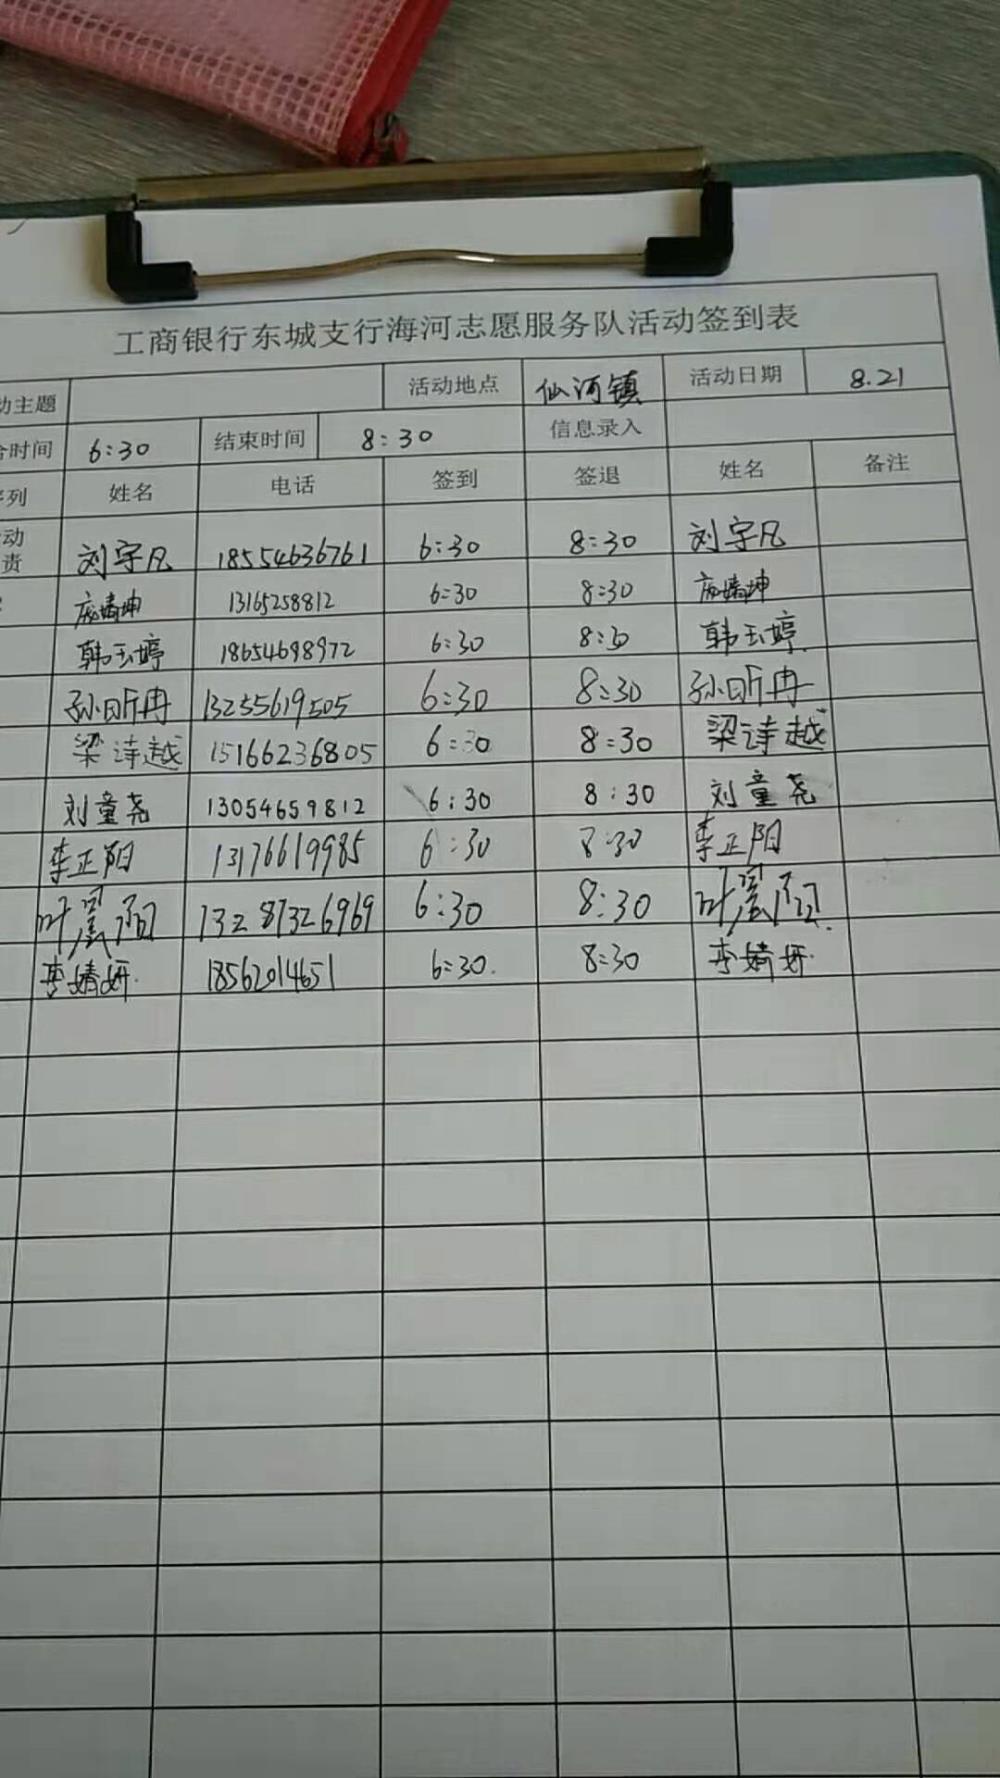 工商银行东城支行海河志愿服务队活动签到表
动主题 活动地点 仙河镇 活动日期 8.21
合时间 6:30 结束时间 8:30 信息录入
序列 姓名 电话 签到 签退 姓名 备注
动
责 刘宇凡 18554636761 6:30 8:30 刘宇凡
庞婧坤 13165258812 6:30 8:30 庞婧坤
韩玉婷 18654698972 6:30 8:30 韩玉婷
孙昕冉 13255619505 6:30 8:30 孙昕冉
梁诗越 15166236805 6:30 8:30 梁诗越
刘童尧 13054659812 6:30 8:30 刘童尧
李正阳 13176619985 6:30 8:30 李正阳
叶 13287326969 6:30 8:30 叶
李婧妍 18562014651 6:30 8:30 李婧妍